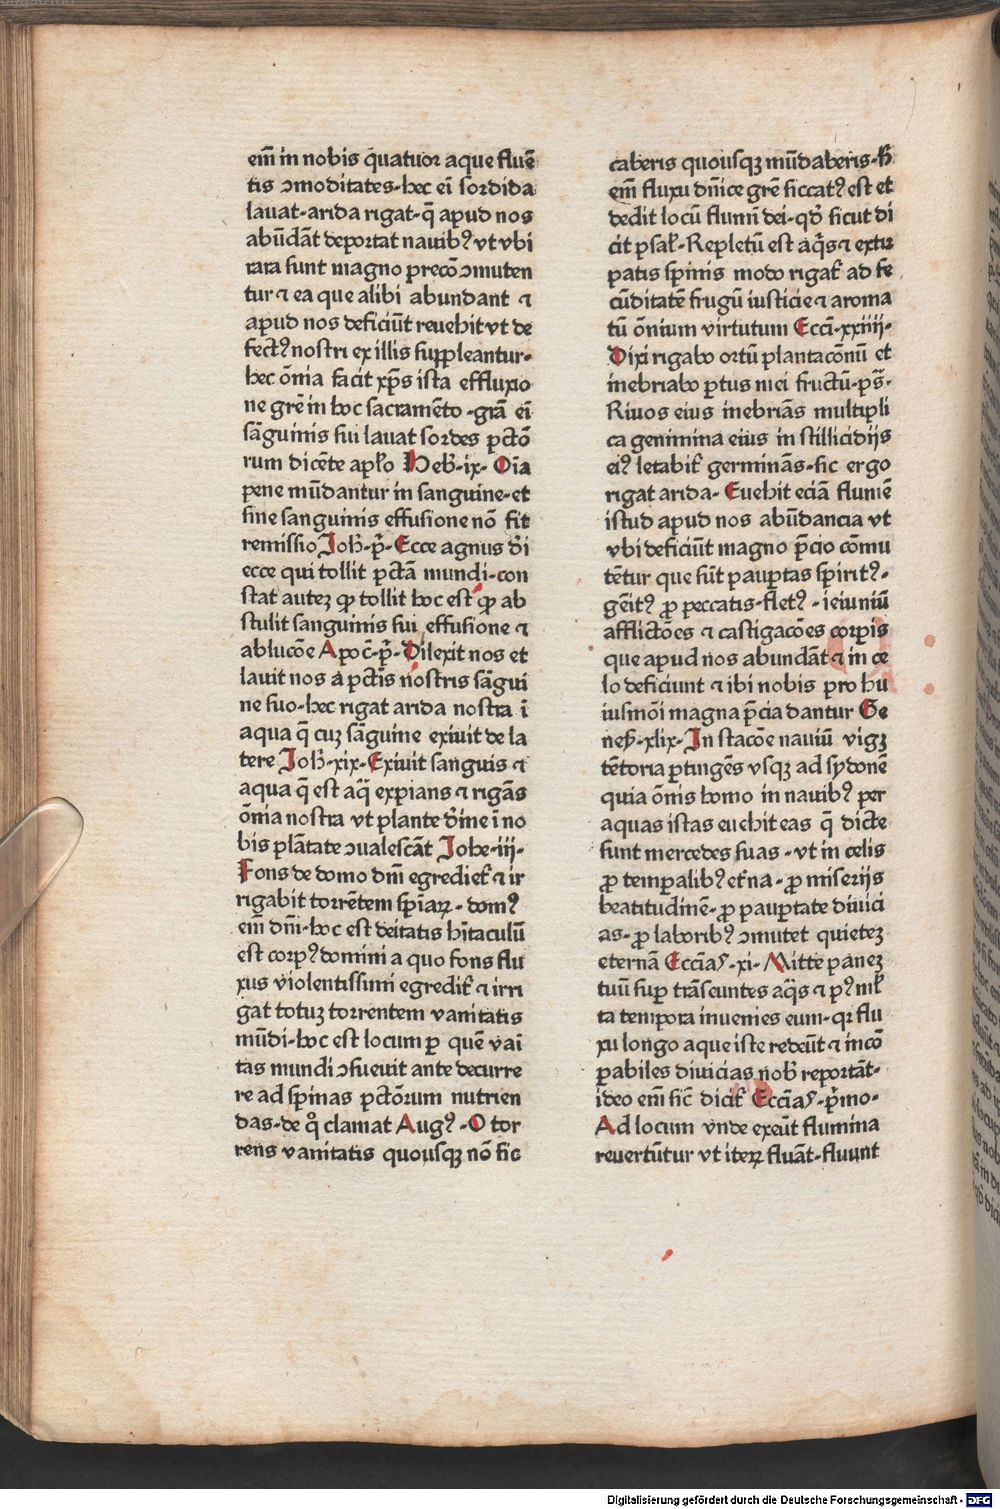 em̄ in nobis q̄uatuor aque fluē
tis ꝯmoditates·hec ei̅ sordida
lauat·arida rigat·q̄ apud nos
abūdāt deportat nauibꝰ vt vbi
rara sunt magno precō ꝯmuten
tur ⁊ ea que alibi abundant ⁊
apud nos deficiūt reuehit vt de
fectꝰ nostri ex illis suppleantur·
hec ōnia facit xp̄s ista effluxio
ne grē in hoc sacramēto·grā ei̅
sāguinis sui lauat sordes pctō
rum dicēte aplo Heb̄·ix· Oīa
pene mūdantur in sanguine·et
sine sanguinis effusione nō fit
remissio Joh̄·p̄·Ecce agnus d̄i
ecce qui tollit pctā mundi·con
stat autez ꝙ tollit hoc est ꝙ ab
stulit sanguinis sui effusione ⁊
ablucōe Apoc̄·p̄·Dilexit nos et
lauit nos a pctīs nostris sāgui
ne suo·hec rigat arida nostra ī
aqua q̄ cuz sāguine exiuit de la
tere Joh̄·xix·Exiuit sanguis ⁊
aqua q̄ est aq̄ expians ⁊ rigās
ōnia nostra vt plante d̄ine ī no
bis plātate ꝯualescāt Johe·iij·
Fons de domo dn̄i egrediet̄ ⁊ ir
rigabit torrētem spīaꝝ·domꝰ
em̄ dn̄i·hoc est deitatis hītaculū
est corpꝰ domini a quo fons flu
xus violentissimi egredit̄ ⁊ irri
gat totuz torrentem vanitatis
mūdi·hoc est locum ꝑ quē vāi
tas mundi ꝯsueuit ante decurre
re ad spinas pctōrum nutrien
das·de q̊ clamat Augꝰ·O tor
rens vanitatis quousqꝫ nō sic
caberis quousqꝫ mūdaberis·H̄
em̄ fluxu dn̄ice grē siccatꝰ est et
dedit locū flumī dei·qd̄ sicut di
cit psal̄·Repletū est aq̄s ⁊ extir
patis spinis modo rigat̄ ad fe
cūditatē frugū iusticie ⁊ aroma
tū ōnium virtutum Ecci̅·xxiiii·
Dixi rigabo ortū plantacōnū et
inebriabo ꝑtus mei fructū·ps̄·
Riuos eius inebriās multipli
ca genimina eius in stillicidijs
eiꝰ letabit̄ germinās·sic ergo
rigat arida· Euehit eciā flumē
istud apud nos abūdancia vt
vbi deficiūt magno p̄cio cōmu
tētur que sūt pauꝑtas spiritꝰ·
gēitꝰ ꝓ peccatis·fletꝰ·ieiuniū
afflictōes ⁊ castigacōes corpīs
que apud nos abundāt ⁊ in ce
lo deficiunt ⁊ ibi nobis pro hu
iusmōi magna p̄cia dantur Ge
neſ̄·xlix·In stacōe nauiū vigꝫ
tētoria ꝑtingēs vsqꝫ ad sydonē
quia ōnis homo in nauibꝰ per
aquas istas euehit eas q̄ dicte
sunt mercedes suas·vt in celis
ꝓ temꝑalibꝰ et̄na·ꝓ miserijs
beatitudinē·ꝓ pauꝑtate diuici
as·ꝓ laboribꝰ ꝯmutet quietez
eternā Eccīas̄·xi·Mitte panez
tuū suꝑ trāseuntes aq̄s ⁊ pꝰ ml̄
ta tempora inuenies eum·qr flu
xu longo aque iste redeūt ⁊ incō
ꝑabiles diuicias nob̄ reportāt·
ideo em̄ sic̄ dicit̄ Eccīas̄·p̄mo·
Ad locum vnde exeūt flumina
reuertūtur vt iteꝝ fluāt·fluunt
Digitalisierung gefördert durch die Deutsche Forschungsgemeinschaft - DFG